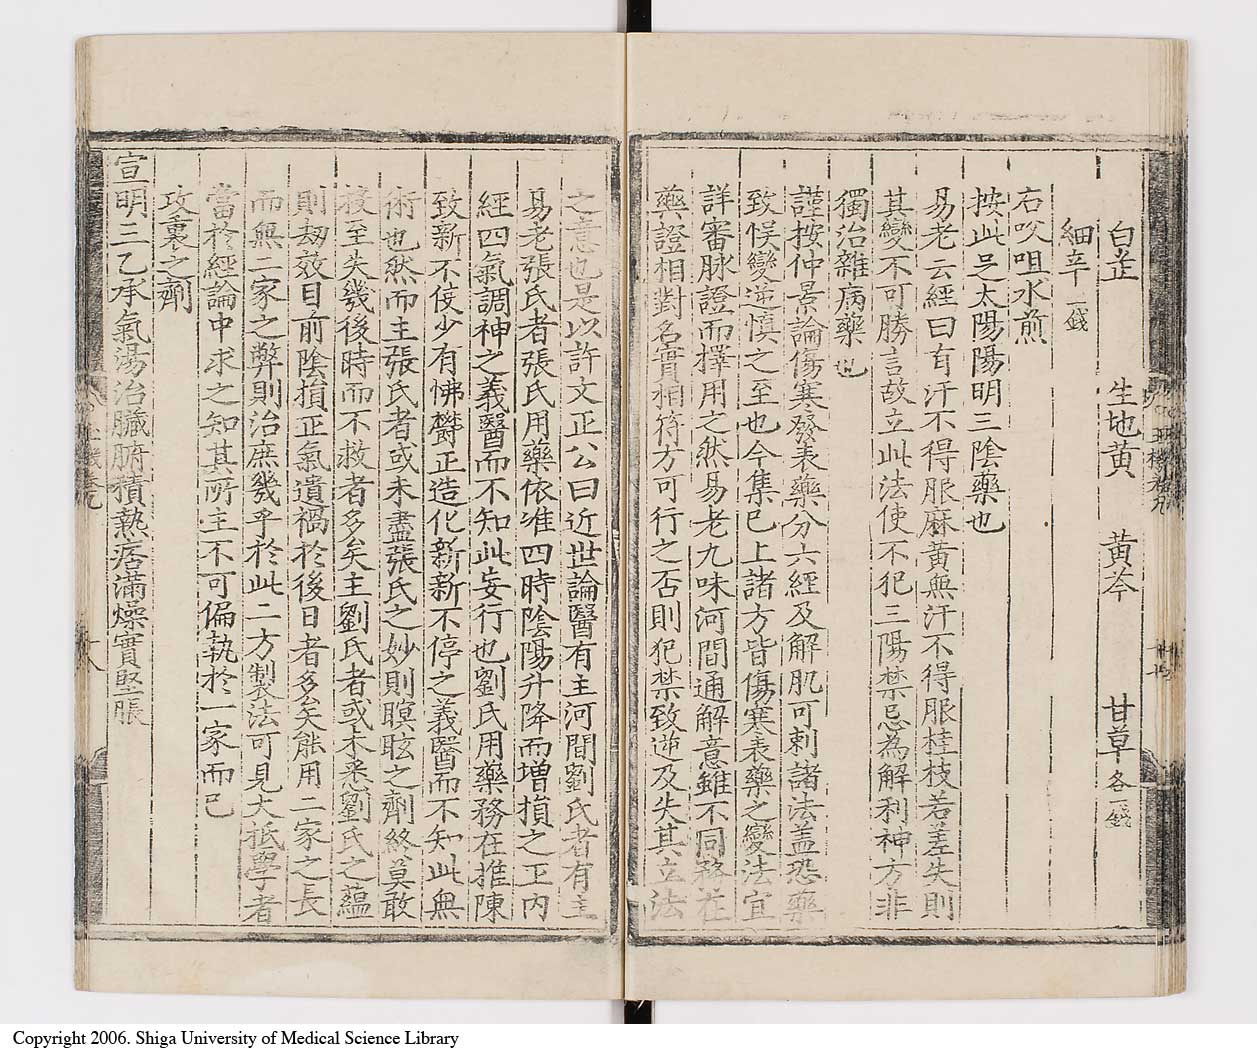 白芷　生地黄　黄芩　甘草各一錢
細辛一錢
右㕮咀水煎
按此足太陽陽明三陰藥也
易老云經曰有汗不得服麻黄無汗不得服桂枝若差失則
其變不可勝言故立此法使不犯三陽禁忌為解利神方非
獨治雜病藥也
謹按仲景論傷寒發表藥分六經及解肌可刺諸法盖恐藥
致悮變逆慎之至也今集已上諸方皆傷寒表藥之變法宜
詳審脉證而擇用之然易老九味河間通解意雖不同務在
藥證相對名實相符方可行之否則犯禁致逆及失其立法
之意也是以許文正公曰近世論醫有主河間劉氏者有主
易老張氏者張氏用藥依准四時陰陽升降而增損之正内
經四氣調神之義醫而不知此妄行也劉氏用藥務在推陳
致新不使少有怫欝正造化新新不停之義醫而不知此無
術也然而主張氏者或未盡張氏之妙則瞑眩之劑終莫敢
投至失幾後時而不救者多矣主劉氏者或未悉劉氏之藴
則劫效目前陰損正氣遺禍於後日者多矣能用二家之長
而無二家之弊則治庶幾乎於此二方製法可見大抵學者
當於經論中求之知其所主不可偏執於一家而已
攻裏之劑
宣明三乙承氣湯治臓腑積熱痞滿燥實堅脹
Copyright 2006. Shiga University of Medical Science Library